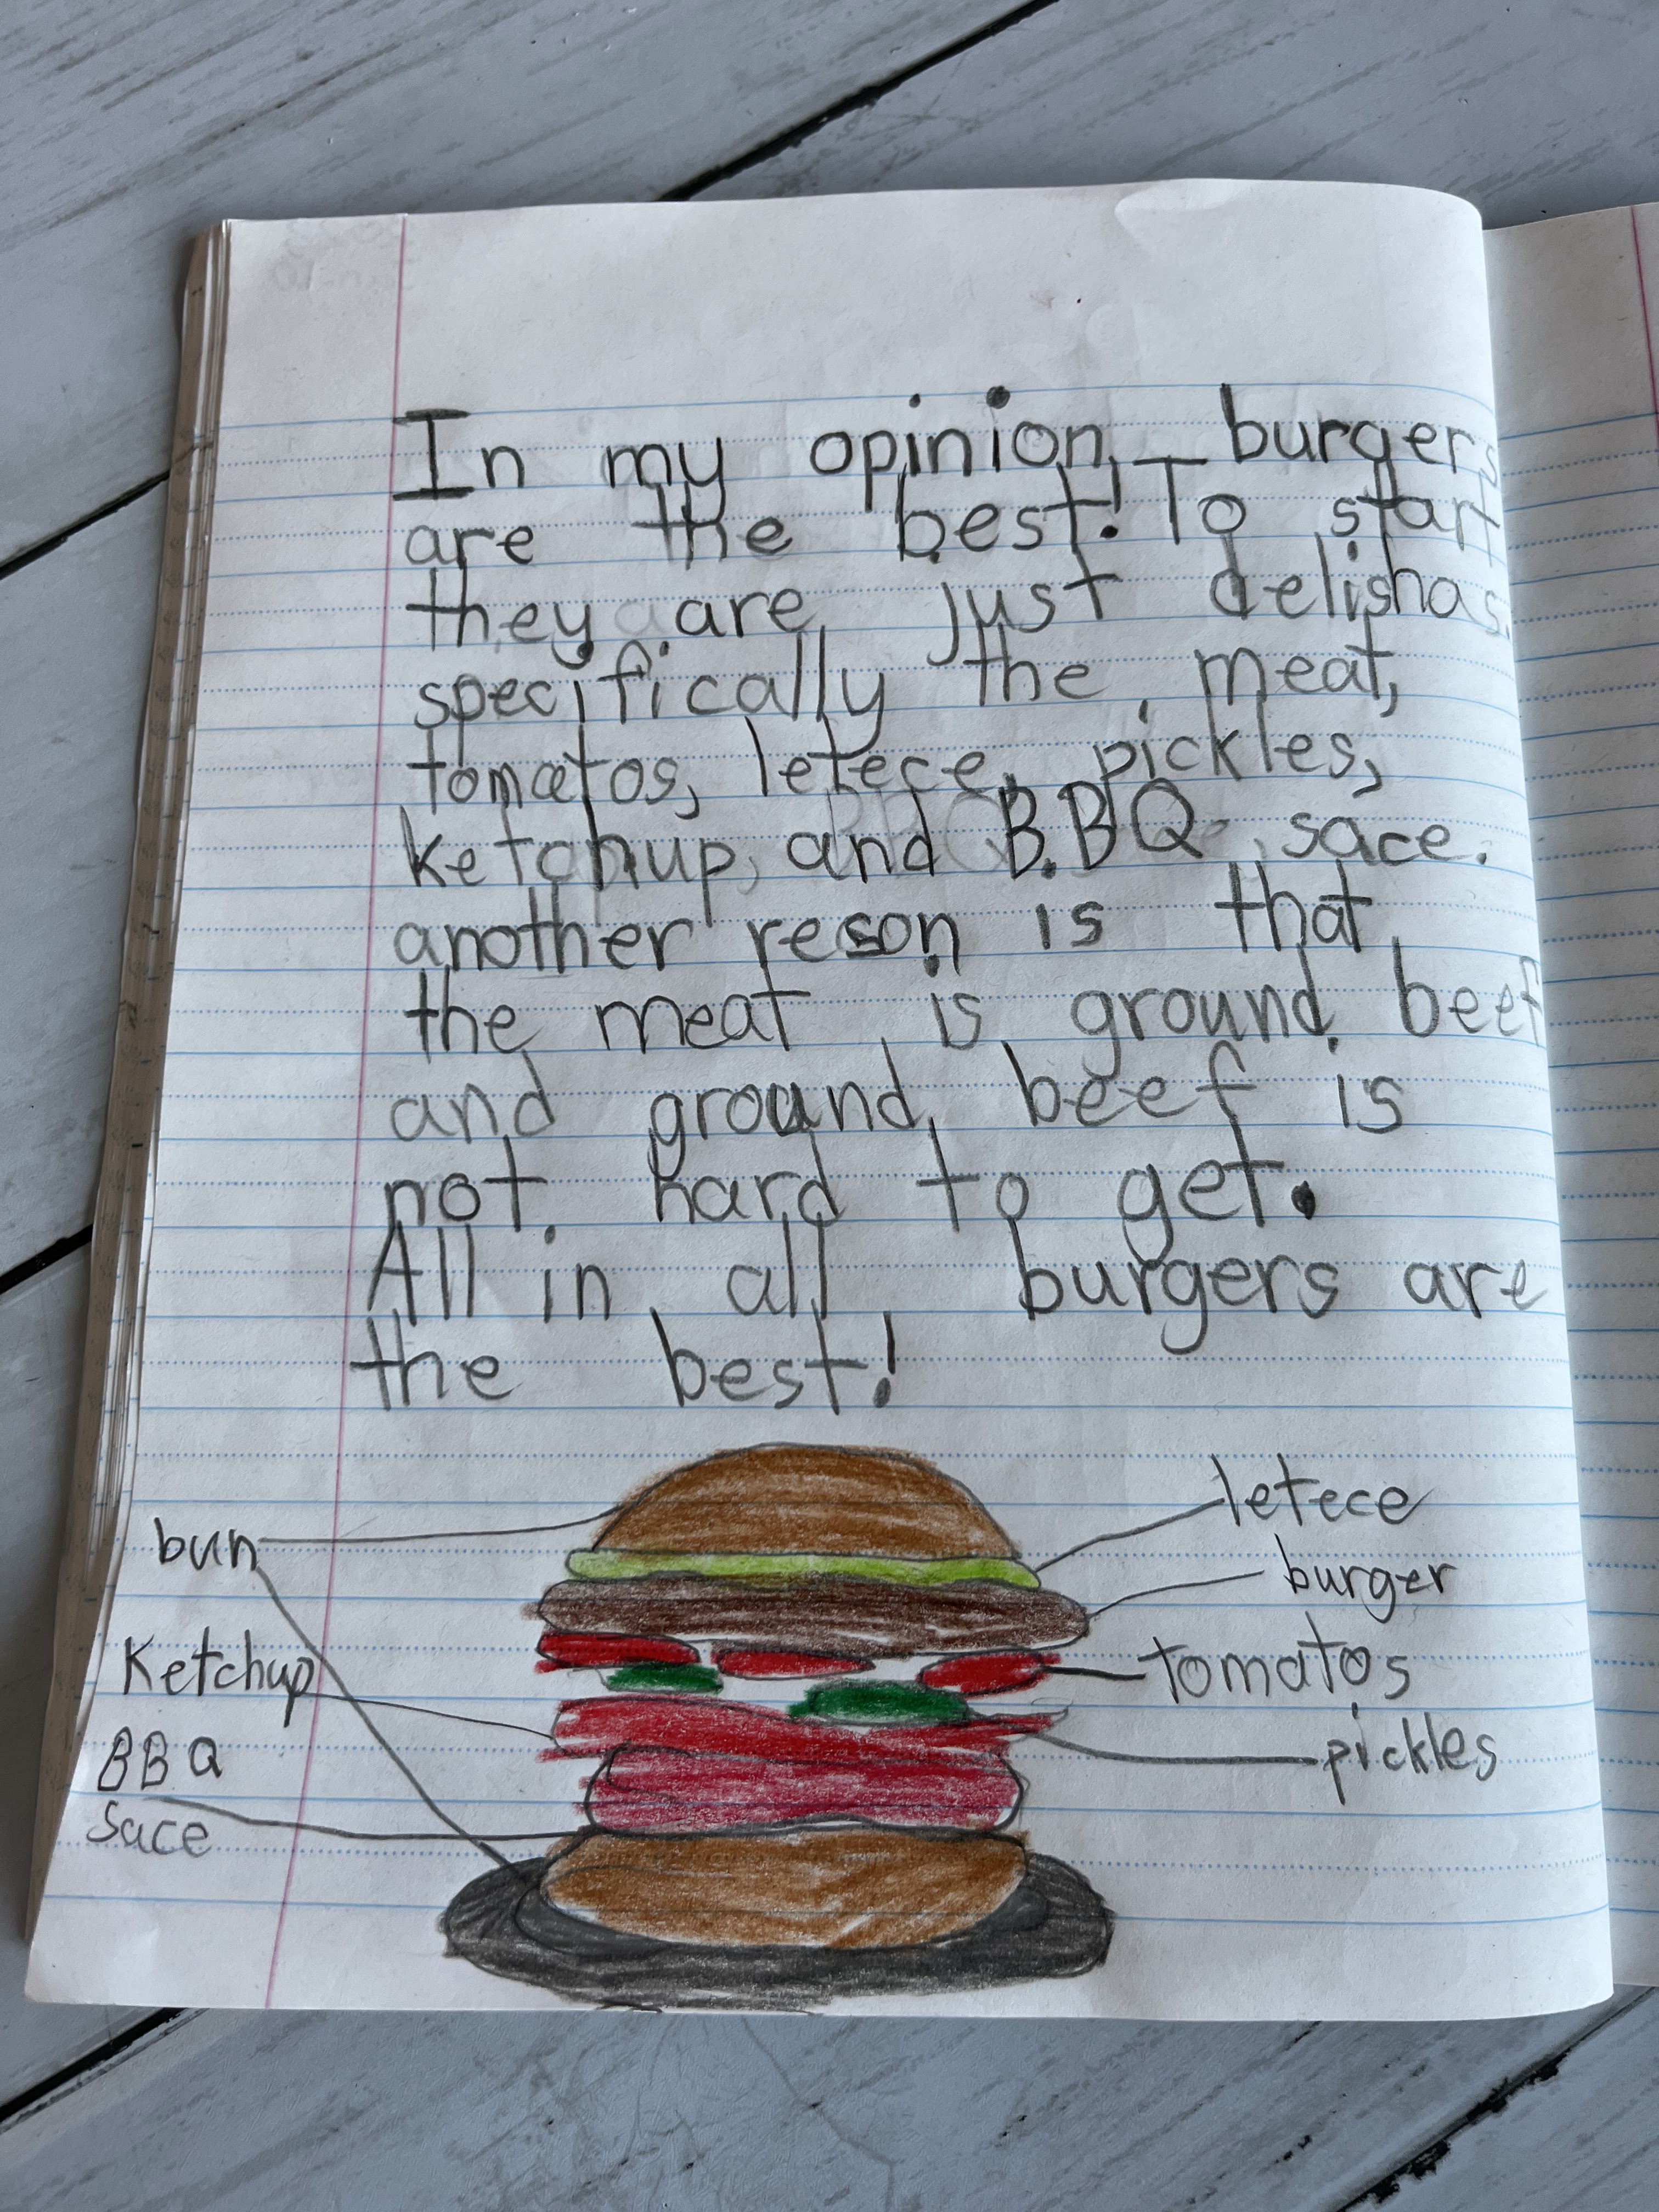 In my opinion, burgers
are the best! To start
they are just delishas.
specifically the meat,
tomatos, letece, pickles,
ketchup, and B.BQ sace.
another reson is that
the meat is ground beef
and ground beef is
not hard to get.
All in all, burgers are
the best!
bun
Ketchup
BBQ
Sace
letece
burger
tomatos
pickles